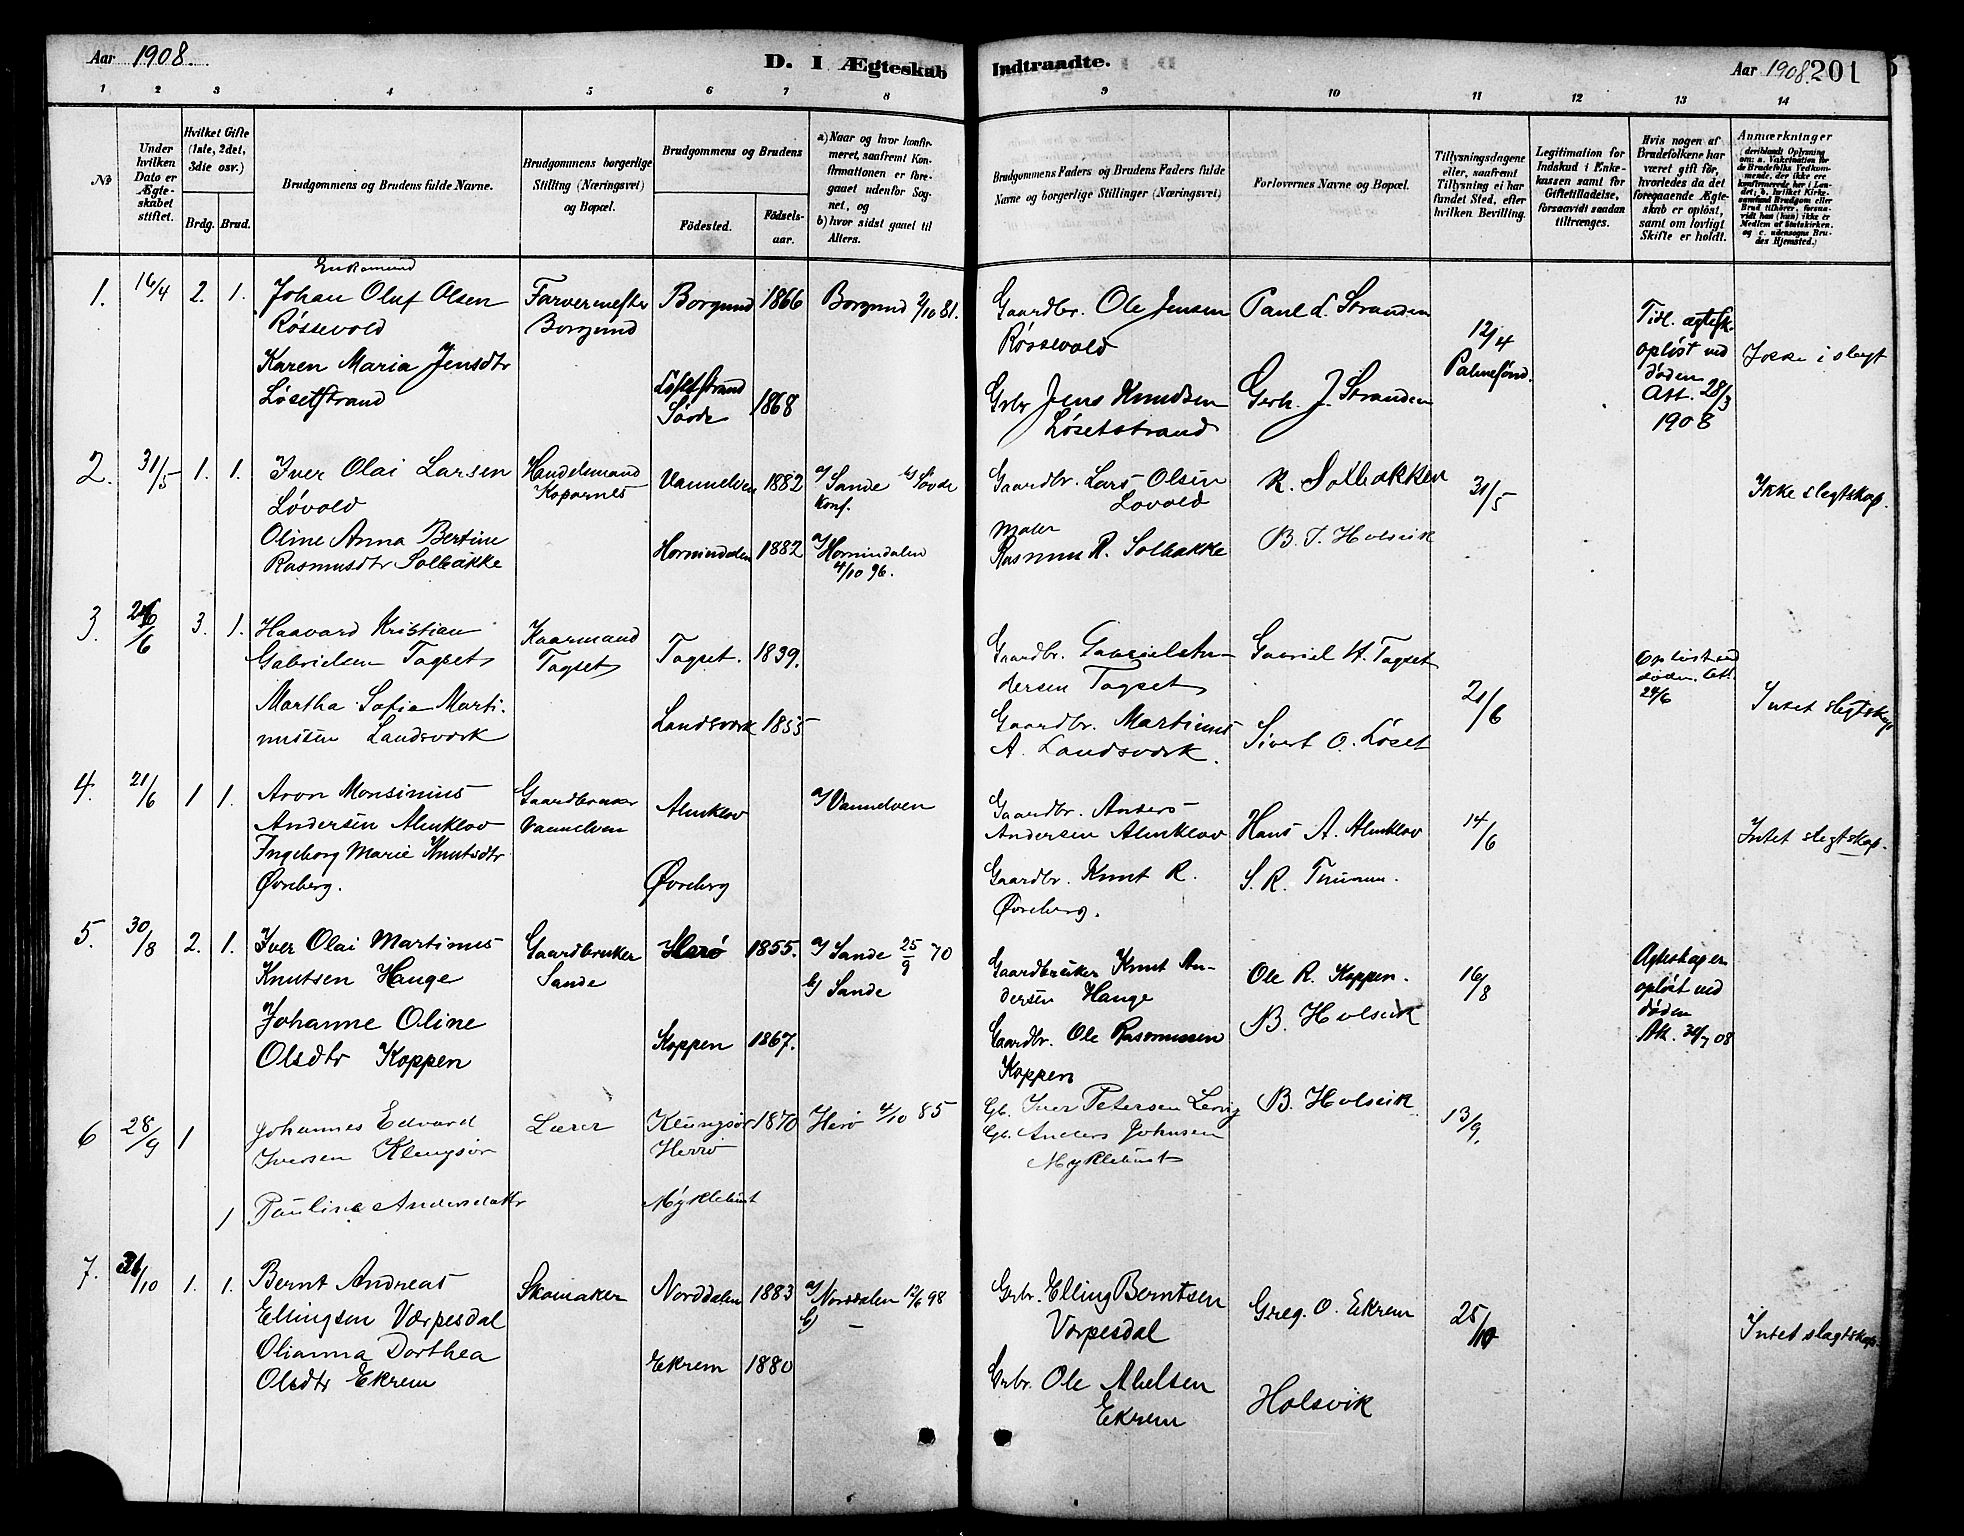 Aar 1908.
D. I Ægteskab
Indtraadte.
Aar 1908. 201
1 2 3 4 5 6 7 8 9 10 11 12 13 14
No
Under hvilken Dato er Ægteskabet stiftet.
Hvilket Gifte (1ste, 2det, 3die osv.)
Brdg. Brud.
Brudgommens og Brudens fulde Navne.
Brudgommens borgerlige Stilling (Næringsvei) og Bopæl.
Brudgommens og Brudens
Fødested.
Fødselsaar.
a) Naar og hvor konfirmeret, saafremt Konfirmationen er foregaaet udenfor Sognet, og
b) hvor sidst gaaet til Alters.
Brudgommens Faders og Brudens Faders fulde Navne og borgerlige Stillinger (Næringsvei)
Forlovernes Navne og Bopæl.
Tillysningsdagene eller, saafremt Tillysning ei har fundet Sted, efter hvilken Bevilling.
Legitimation for Indskud i Enkekassen samt for Giftetilladelse, forsaavidt saadan tiltrænges.
Hvis nogen af Brudefolkene har været gift før, hvorledes da det foregaaende Ægteskab er opløst, samt om lovligt Skifte er holdt.
Anmærkninger (deriblandt Oplysning om: a. Vakcination for de Brudefolks Vedkommende, der ikke er konfirmerede her i Landet; b. hvilket Kirkesamfund Brudgom eller Brud tilhører, forsaavidt han (hun) ikke er Medlem af Statskirken, og c. udensogns Brudes Hjemsted.)
1. 16/4 2. 1.
Enkemand
Johan Oluf Olsen
Røssevold
Karen Maria Jensdtr
Løsetstrand
Farvermester
Borgund
Borgund 1866
Løsetstrand
Søvde 1868
Borgund 2/10 81.
Gaardbr. Ole Jensen
Røssevold
Grbr Jens Knudsen
Løsetstrand
Paul L. Stranden
Gerh. J. Stranden
12/4
Palmesønd.
Tidl. ægtesk.
opløst ved
døden
Att. 28/3
1908
Ikke i slegt
2. 31/5 1. 1.
Iver Olai Larsen
Løvold
Oline Anna Bertine
Rasmusdtr Solbakke
Handelsmand
Koparnes
Vannelven 1882
Hornindalen 1882
a/ Sande b/ Søvde
Konf.
a/ Hornindalen
4/10 96.
Gaardbr. Lars Olsen
Lovold
Maler
Rasmus R. Solbakke
R. Solbakken
B. T. Holsvik
31/5
Ikke slegtskap.
3. 6/6 3. 1.
Haavard Kristian
Gabrielsen Tagset
Martha Sofie Marti-
nusen Landsverk
Kaarmand
Tagset
Tagset. 1839.
Landsverk 1855
Gaardbr. Gabriel An-
dersen Tagset
Gaardbr. Martinus
A. Landsverk.
Gabriel H. Tagset
Sivert O. Løset
21/6
Opløst ved
døden. Att.
24/6
Intet slegtskap
4. 21/6 1 1.
Aron Monsinius
Andersen Almklov
Ingeborg Marie Knutsdtr
Øvreberg.
Gaardbruker
Vannelven
Almklov
Øvreberg
a/ Vannelven
Gaardbr. Anders
Andersen Almklov
Gaardbr. Knut R.
Øvreberg.
Hans A. Almklov
S. R.
14/6
Intet slegtskap.
5. 30/8 2. 1.
Iver Olai Martinus
Knutsen Hauge
Johanne Oline
Olsdtr Koppen
Gaardbruker
Sande
Harø 1855.
Koppen 1867.
a/ Sande 25/9 70
b/ Sande
Gaardbruker Knut An-
dersen Hauge
Gaardbr. Ole Rasmussen
Koppen
Ole R. Koppen.
B. Holsvik
16/8
opløst ved
døden
6 28/9 1
Johannes Edvard
Iversen Klungsør
1 Pauline Andersdattr
Lærer
Klungsør 1870
Herrø
Myklebust
Herø 4/10 85
Gb. Iver Petersen
Gb. Anders Johnsen
Myklebust
B. Holsvik
13/9.
7. /10 1. 1.
Bernt Andreas
Ellingsen Værpesdal
Olianna Dorthea
Olsdtr Ekrem
Skomaker
Norddalen 1883
Ekrem 1880
a/ Norddalen 12/6 98
b/ —
Grbr. Elling Berntsen
Værpesdal
Grbr. Ole Abelsen
Ekrem
Greg. O. Ekrem
Holsvik
25/10
Intet slagtskap.